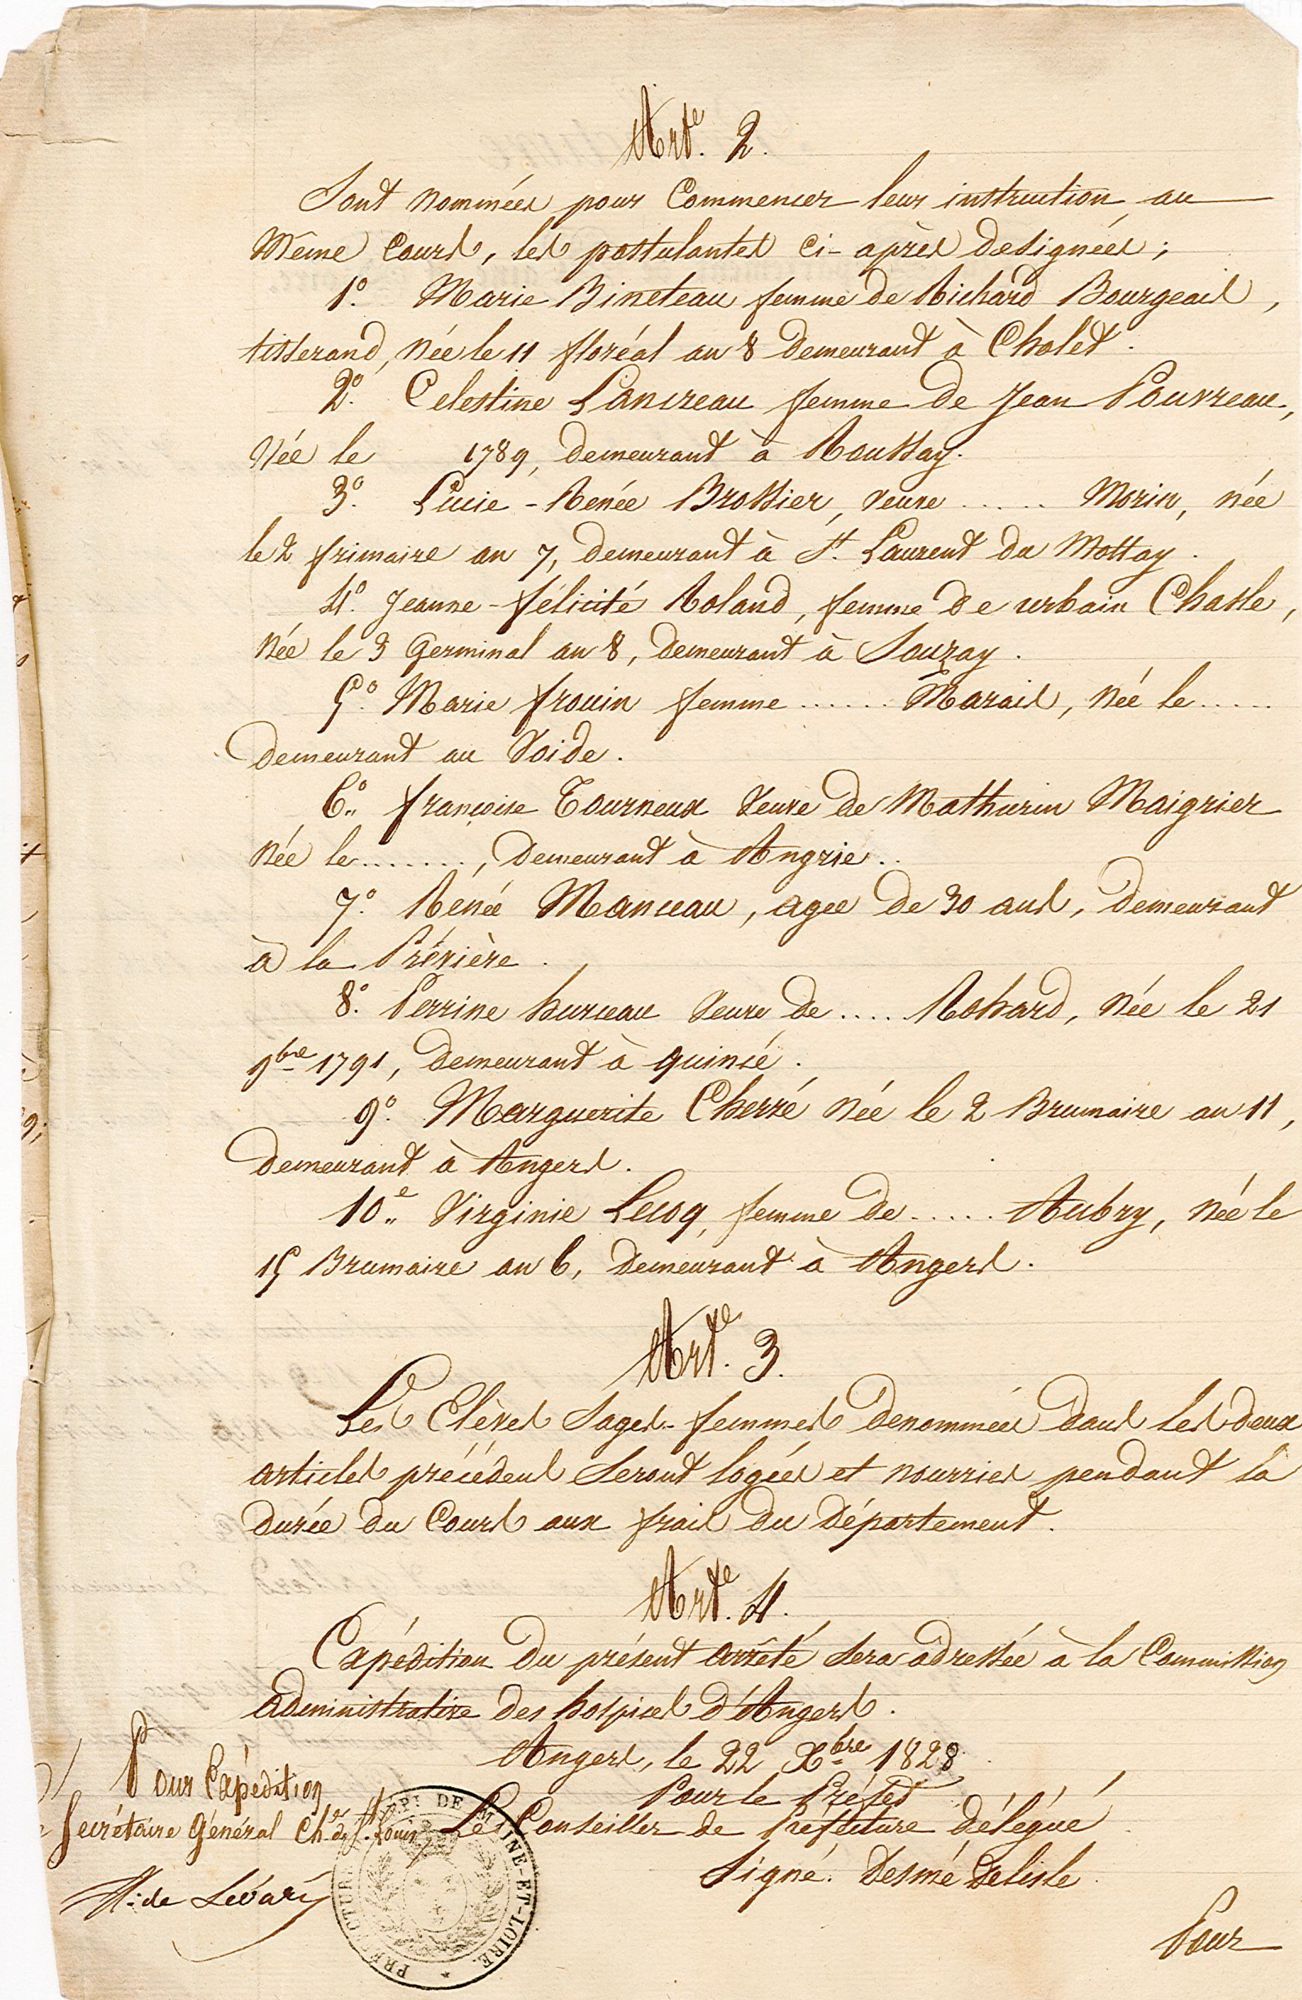 Art.e 2.
Sont nommées pour Commencer leur instruction au
même Cours, les postulantes ci-après désignées;
1.° Marie Bineteau femme de Richard Bourgeais,
tisserand, née le 11 floréal an 8 demeurant à Cholet.
2.° Celestine Lancreau femme de Jean Pouvreau,
née le 1789, demeurant à Roussay.
3.° Lucie-Renée Brossier, veuve ..... Morin, née
le 2 frimaire an 7, demeurant à St. Laurent du Mottay.
4.° Jeanne-félicité Roland, femme de urbain Chasle,
née le 3 Germinal an 8, demeurant à Souzay.
5.° Marie frouin femme ...... Marais, née le .....
demeurant au Voide.
6.° françoise Tourneux veuve de Mathurin Maigrier
née le ......., demeurant à Angrie..
7.° Rénée Manceau, agee de 30 ans, demeurant
à la Prévière.
8.° Perrine hureau veuve de .... Rohard, née le 21
9bre 1791, demeurant à quincé.
9.° Marguerite Cherré née le 2 Brumaire an 11,
demeurant à Angers.
10.e Virginie Lecoq, femme de ..... Aubry, née le
15 Brumaire an 6, demeurant à Angers.
Art.e 3.
Les Elèves Sages-femmes dénommées dans les deux
articles précédens seront logées et nourries pendant la
durée du Cours aux frais du département.
Art.e 4.
Expédition du présent arrêté sera adressée à la Commission
administrative des hospices d'Angers.
Angers, le 22 Xbre 1828.
Pour le Préfet
Le Conseiller de Préfecture délégué
Signé. Desmé Delisle.
Pour Expédition,
Secrétaire Général Ch.er de St. Louis,
PRÉFECTURE DE MAINE-ET-LOIRE.
Pour